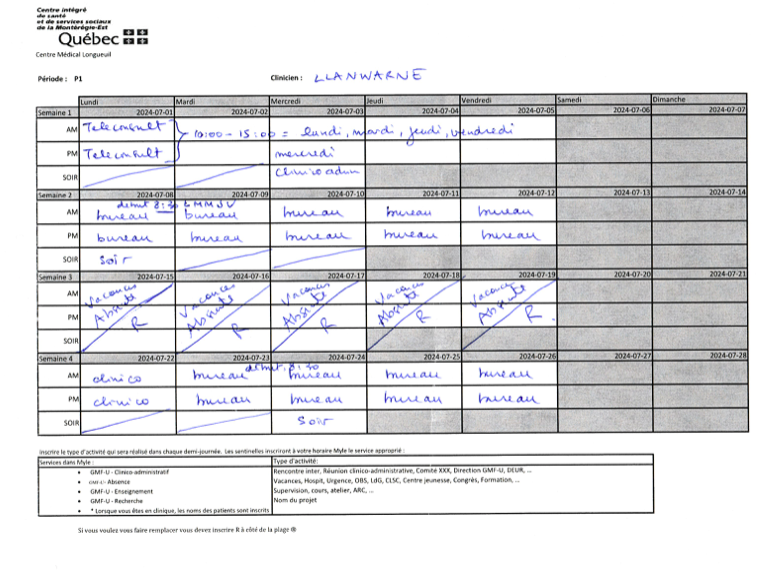 Centre intégré
de santé
et de services sociaux
de la Montérégie-Est
Québec
Centre Médical Longueuil
Période : P1 Clinicien : LLANWARNE
Lundi Mardi Mercredi Jeudi Vendredi Samedi Dimanche
Semaine 1 2024-07-01 2024-07-02 2024-07-03 2024-07-04 2024-07-05 2024-07-06 2024-07-07
AM Teleconsult 10:00 - 15:00 = lundi, mardi, jeudi, vendredi
PM Teleconsult mercredi
SOIR clinico adm
Semaine 2 2024-07-08 2024-07-09 2024-07-10 2024-07-11 2024-07-12 2024-07-13 2024-07-14
début 8:30 LMMJV
AM bureau bureau bureau bureau bureau
PM bureau bureau bureau bureau bureau
SOIR Soir
Semaine 3 2024-07-15 2024-07-16 2024-07-17 2024-07-18 2024-07-19 2024-07-20 2024-07-21
AM Vacances Vacances Vacances Vacances Vacances
PM Absente R Absente R Absente R Absente R Absente R
SOIR
Semaine 4 2024-07-22 2024-07-23 2024-07-24 2024-07-25 2024-07-26 2024-07-27 2024-07-28
début 8:30
AM clinico bureau bureau bureau bureau
PM clinico bureau bureau bureau bureau
SOIR Soir
Inscrire le type d'activité qui sera réalisé dans chaque demi-journée. Les sentinelles inscriront à votre horaire Myle le service approprié :
Services dans Myle : Type d'activité:
• GMF-U - Clinico-administratif Rencontre inter, Réunion clinico-administrative, Comité XXX, Direction GMF-U, DEUR, ...
• GMF-U - Absence Vacances, Hospit, Urgence, OBS, LdG, CLSC, Centre jeunesse, Congrès, Formation, ...
• GMF-U - Enseignement Supervision, cours, atelier, ARC, ...
• GMF-U - Recherche Nom du projet
• * Lorsque vous êtes en clinique, les noms des patients sont inscrits
Si vous voulez vous faire remplacer vous devez inscrire R à côté de la plage